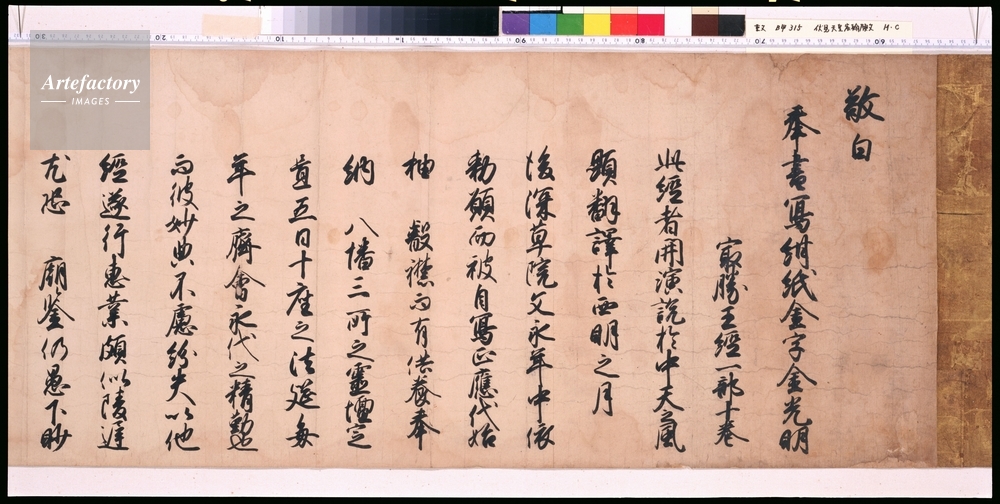 敬白
奉書写紺紙金字金光明
最勝王経一部十巻
此経者開演説於中天之風
顕翻訳於西明之月
後深草院文永年中依
勅願而被自写正応代始
抽叡襟而有供養奉
納 八幡三所之霊壇定
置五日十座之法莚毎
年之斎会永代之精懃也
而彼妙典不慮紛失以他
経遂行恵業頗似陵遅
尤恐 廟鑒仍愚下眇
Artefactory
IMAGES